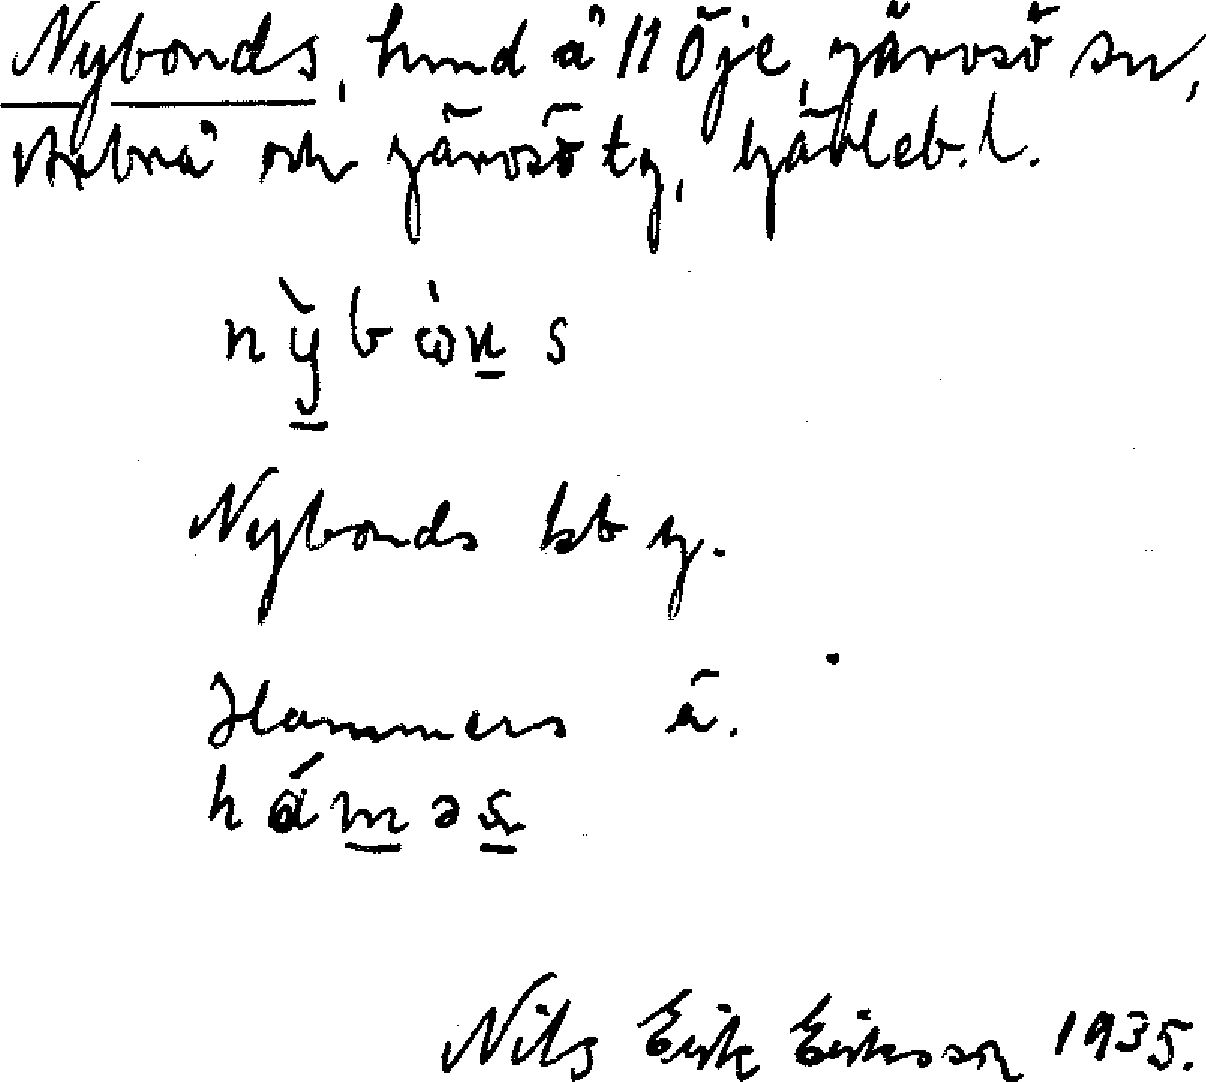 Nybonds, hmd å 11 Öje, Järvsö sn,
Arbrå och Järvsö tg, Gävleb. l.
nỳbὼn s
Nybonds kb y.
Hammers ä.
háməs
Nils Erik Eriksson 1935.